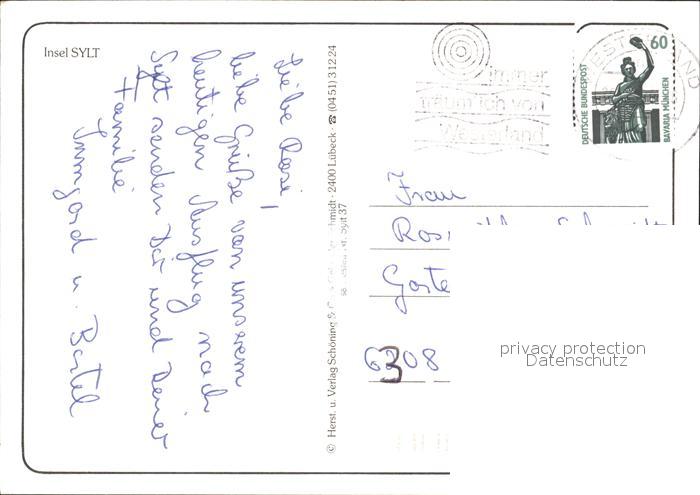 Insel SYLT
Liebe Rosi,
liebe Grüße von unserem
heutigen Ausflug nach
Sylt senden Dir und Deiner
Familie
Irmgard u. Bartel
© Herst. u. Verlag Schöning & Schmidt · 2400 Lübeck ☎ (0451) 3 12 24
Sylt 37
immer
träum ich von
Westerland
DEUTSCHE BUNDESPOST
60
BAVARIA MÜNCHEN
Frau
Garte
6308
privacy protection
Datenschutz